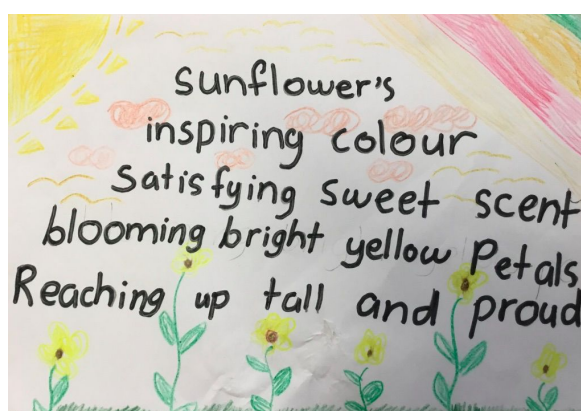 Sunflower's
inspiring colour
Satisfying sweet scent
blooming bright yellow Petals
Reaching up tall and proud